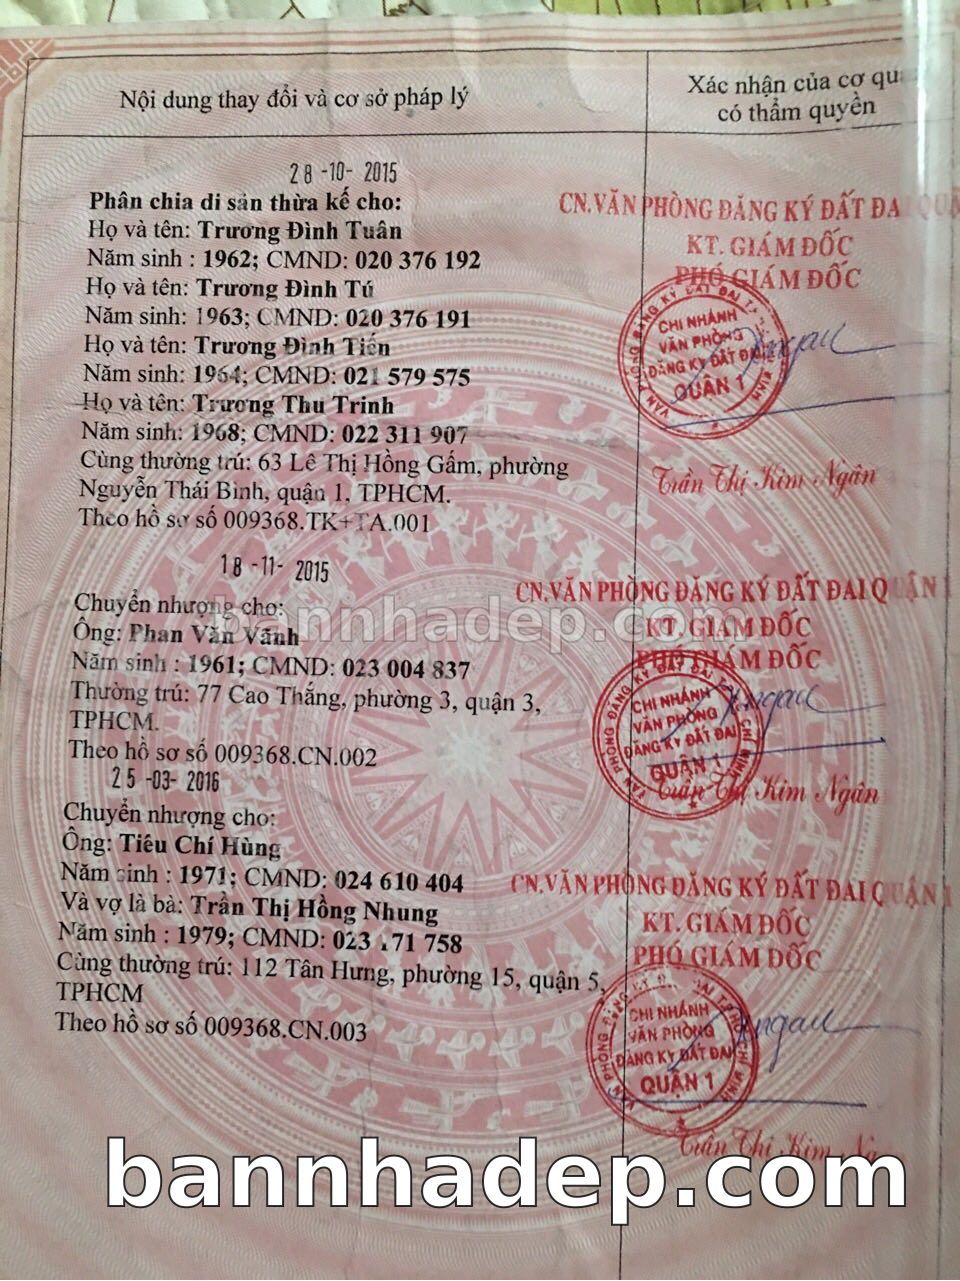 Nội dung thay đổi và cơ sở pháp lý
Xác nhận của cơ
có thẩm quyền
28-10-2015
Phân chia di sản thừa kế cho:
Họ và tên: Trương Đình Tuân
Năm sinh : 1962; CMND: 020 376 192
Họ và tên: Trương Đình Tú
Năm sinh: 1963; CMND: 020 376 191
Họ và tên: Trương Đình Tiến
Năm sinh: 1964; CMND: 021 579 575
Họ và tên: Trương Thu Trinh
Năm sinh: 1968; CMND: 022 311 907
Cùng thường trú: 63 Lê Thị Hồng Gấm, phường
Nguyễn Thái Bình, quận 1, TPHCM.
Theo hồ sơ số 009368.TK+TA.001
CN.VĂN PHÒNG ĐĂNG KÝ ĐẤT ĐAI QUẬN
KT. GIÁM ĐỐC
PHÓ GIÁM ĐỐC
CHI NHÁNH
VĂN PHÒNG
ĐĂNG KÝ ĐẤT ĐAI
QUẬN 1
Trần Thị Kim Ngân
18-11-2015
Chuyển nhượng cho:
Ông: Phan Văn Vãnh
Năm sinh : 1961; CMND: 023 004 837
Thường trú: 77 Cao Thắng, phường 3, quận 3,
TPHCM.
Theo hồ sơ số 009368.CN.002
CN.VĂN PHÒNG ĐĂNG KÝ ĐẤT ĐAI QUẬN 1
KT. GIÁM ĐỐC
PHÓ GIÁM ĐỐC
CHI NHÁNH
VĂN PHÒNG
ĐĂNG KÝ ĐẤT ĐAI
QUẬN 1
Trần Thị Kim Ngân
bannhadep.com
25-03-2016
Chuyển nhượng cho:
Ông: Tiêu Chí Hùng
Năm sinh : 1971; CMND: 024 610 404
Và vợ là bà: Trần Thị Hồng Nhung
Năm sinh : 1979; CMND: 023 171 758
Cùng thường trú: 112 Tân Hưng, phường 15, quận 5,
TPHCM
Theo hồ sơ số 009368.CN.003
CN.VĂN PHÒNG ĐĂNG KÝ ĐẤT ĐAI QUẬN 1
KT. GIÁM ĐỐC
PHÓ GIÁM ĐỐC
CHI NHÁNH
VĂN PHÒNG
ĐĂNG KÝ ĐẤT ĐAI
QUẬN 1
Trần Thị Kim
bannhadep.com